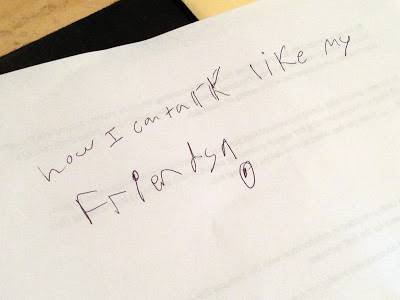 how I can talk like my
Friends